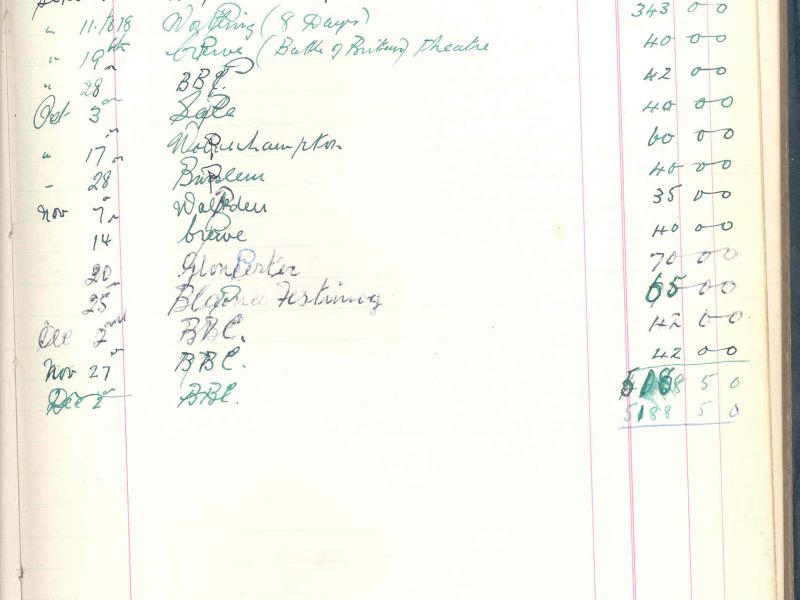 " 11.to 18 Worthing (8 Days) 343 0 0
" 19th Crewe (Battle of Britain) Theatre 40 0 0
" 28 BBC. 42 0 0
Oct 3 Sale 40 0 0
" 17 Wolverhampton 60 0 0
" 28 Burslem 40 0 0
Nov 7 35 0 0
14 Crewe 40 0 0
20 Gloucester 70 0 0
25 Ffestiniog 65 0 0
Dec 2nd BBC. 42 0 0
Nov 27 BBC. 42 0 0
Dec 2 BBC. 5188 5 0
5188 5 0